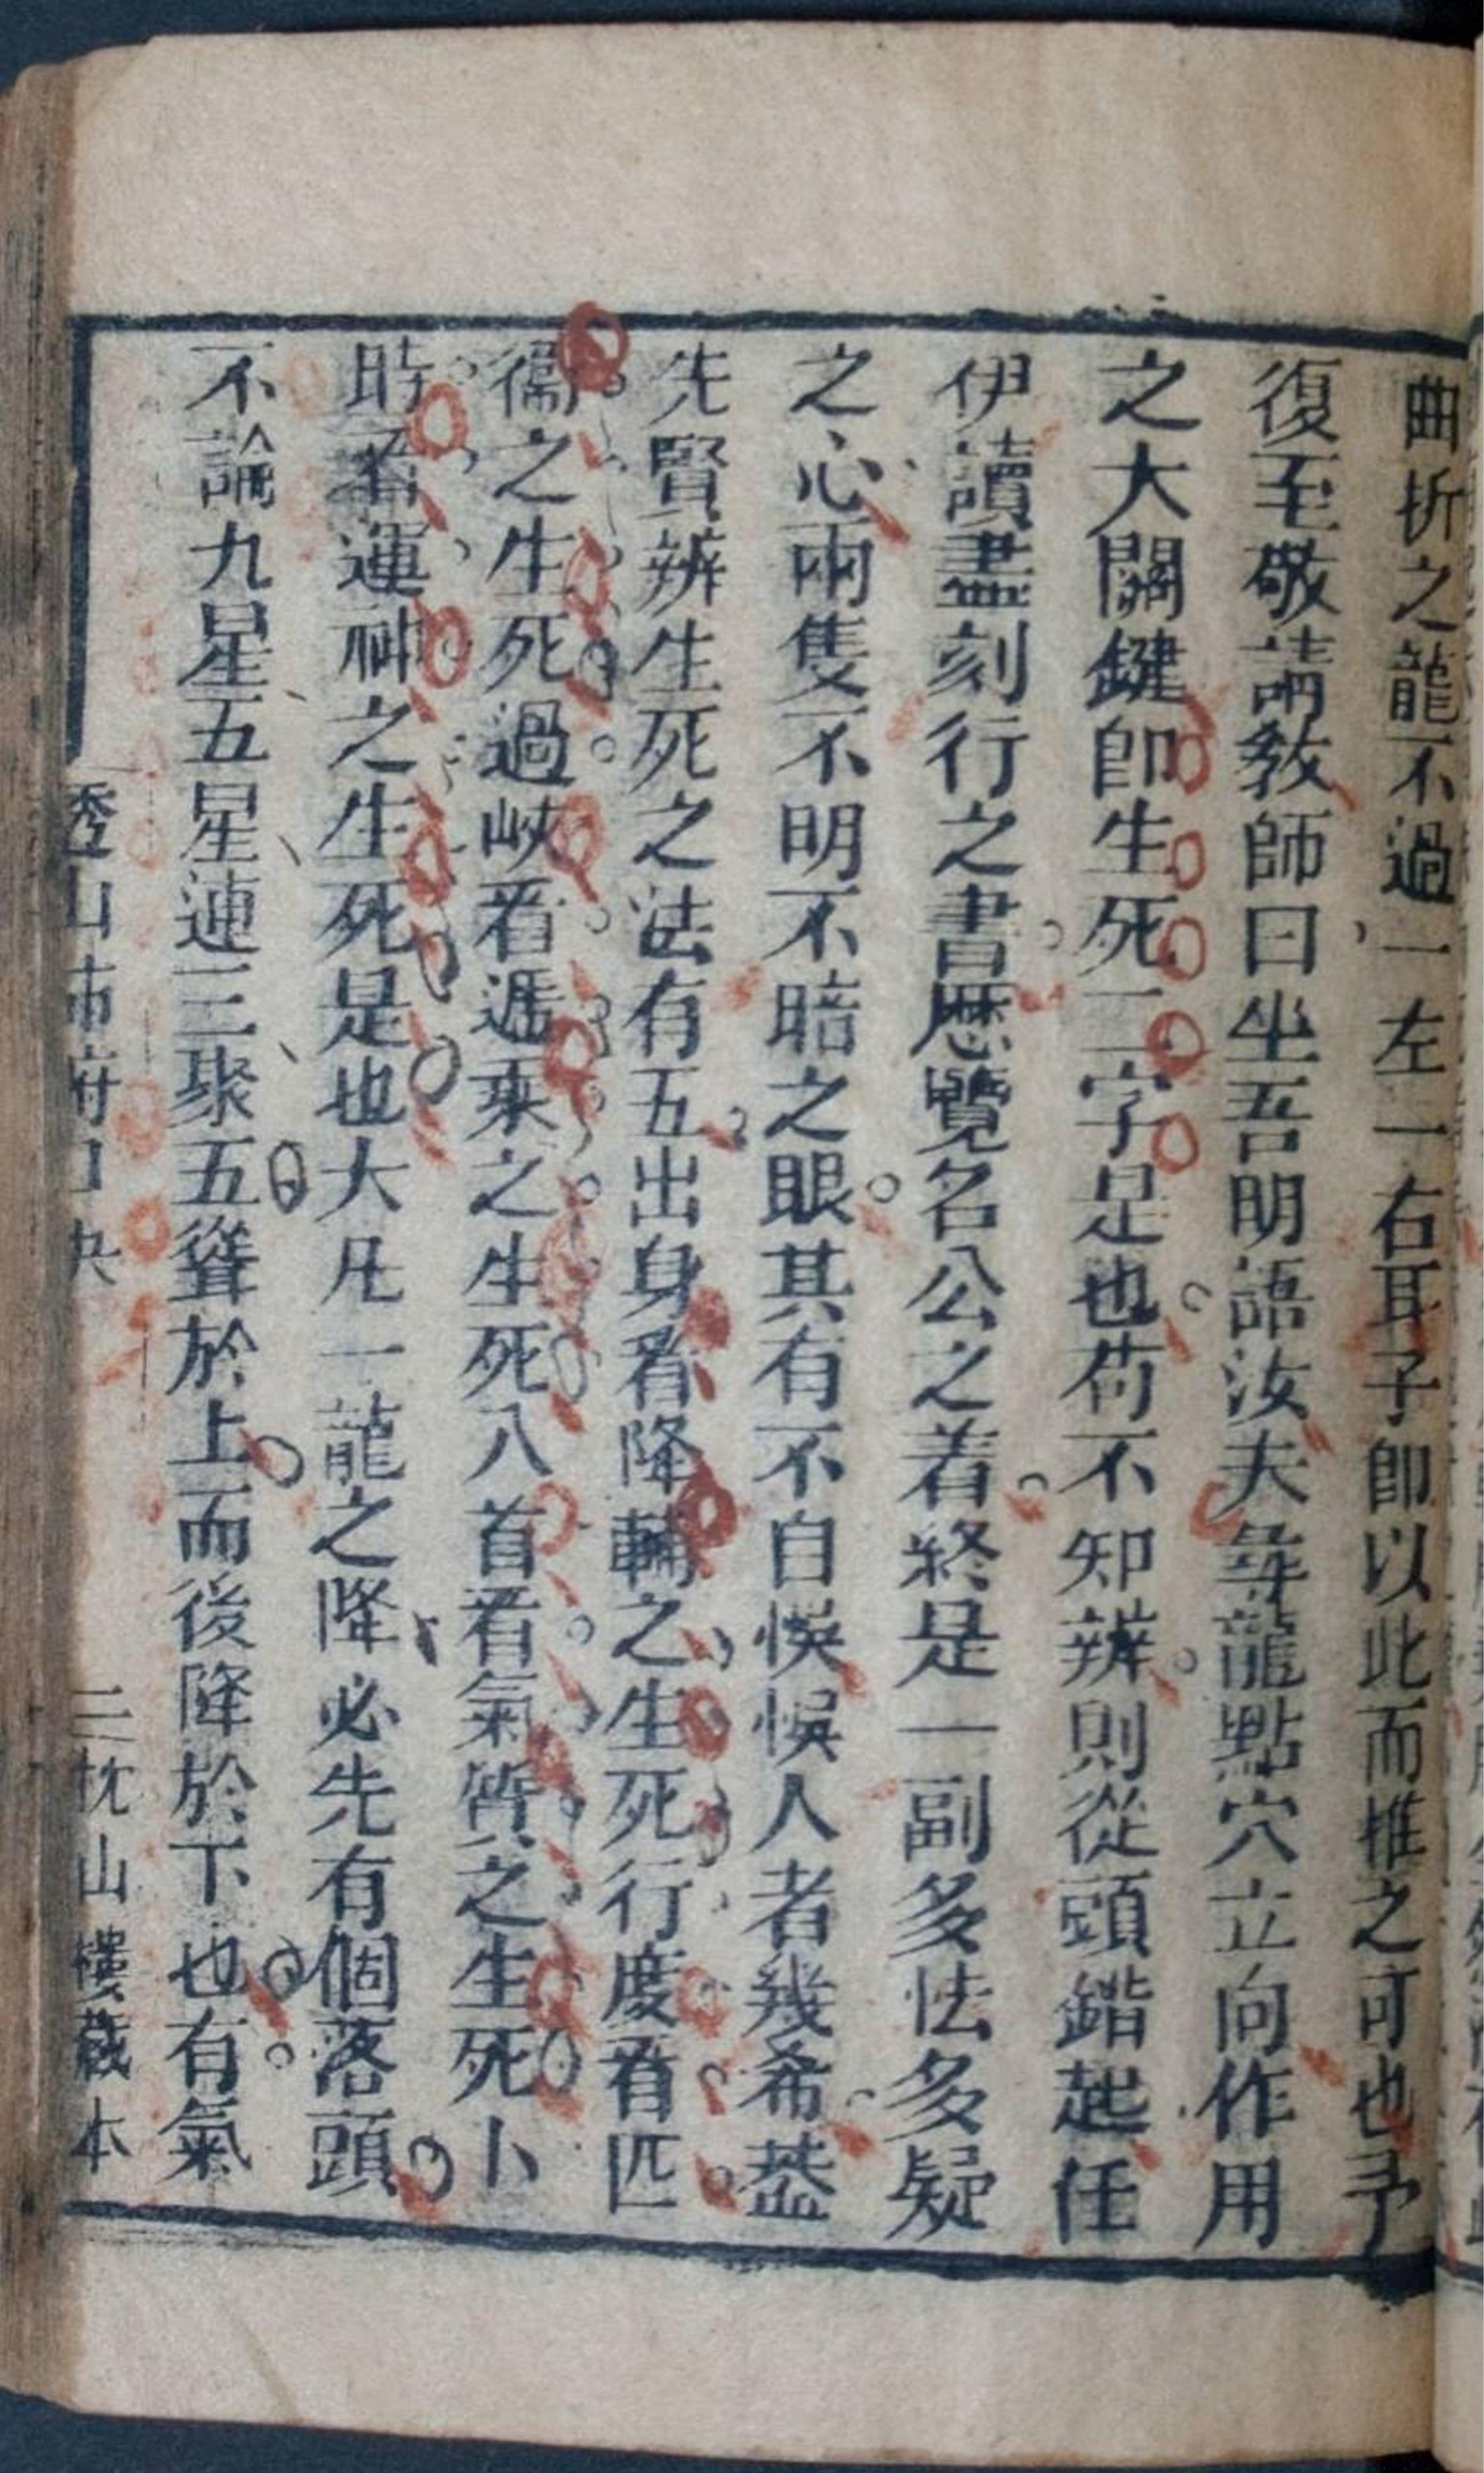 曲折之龍不過一左一右耳子卽以此而推之可也予
復至敬請敎師曰坐吾明語汝夫尋龍點穴立向作用
之大關鍵卽生死二字是也苟不知辨則從頭錯起任
伊讀盡刻行之書歷覽名公之著終是一副多怯多疑
之心兩隻不明不暗之眼其有不自悞悞人者幾希葢
先賢辨生死之法有五出身看降輔之生死行度看匹
偶之生死過峽看遞乘之生死入首看氣質之生死卜
時看運神之生死是也大凡一龍之降必先有個落頭
不論九星五星連三聚五聳於上而後降於下也有氣
透山
府口
三枕山樓藏本